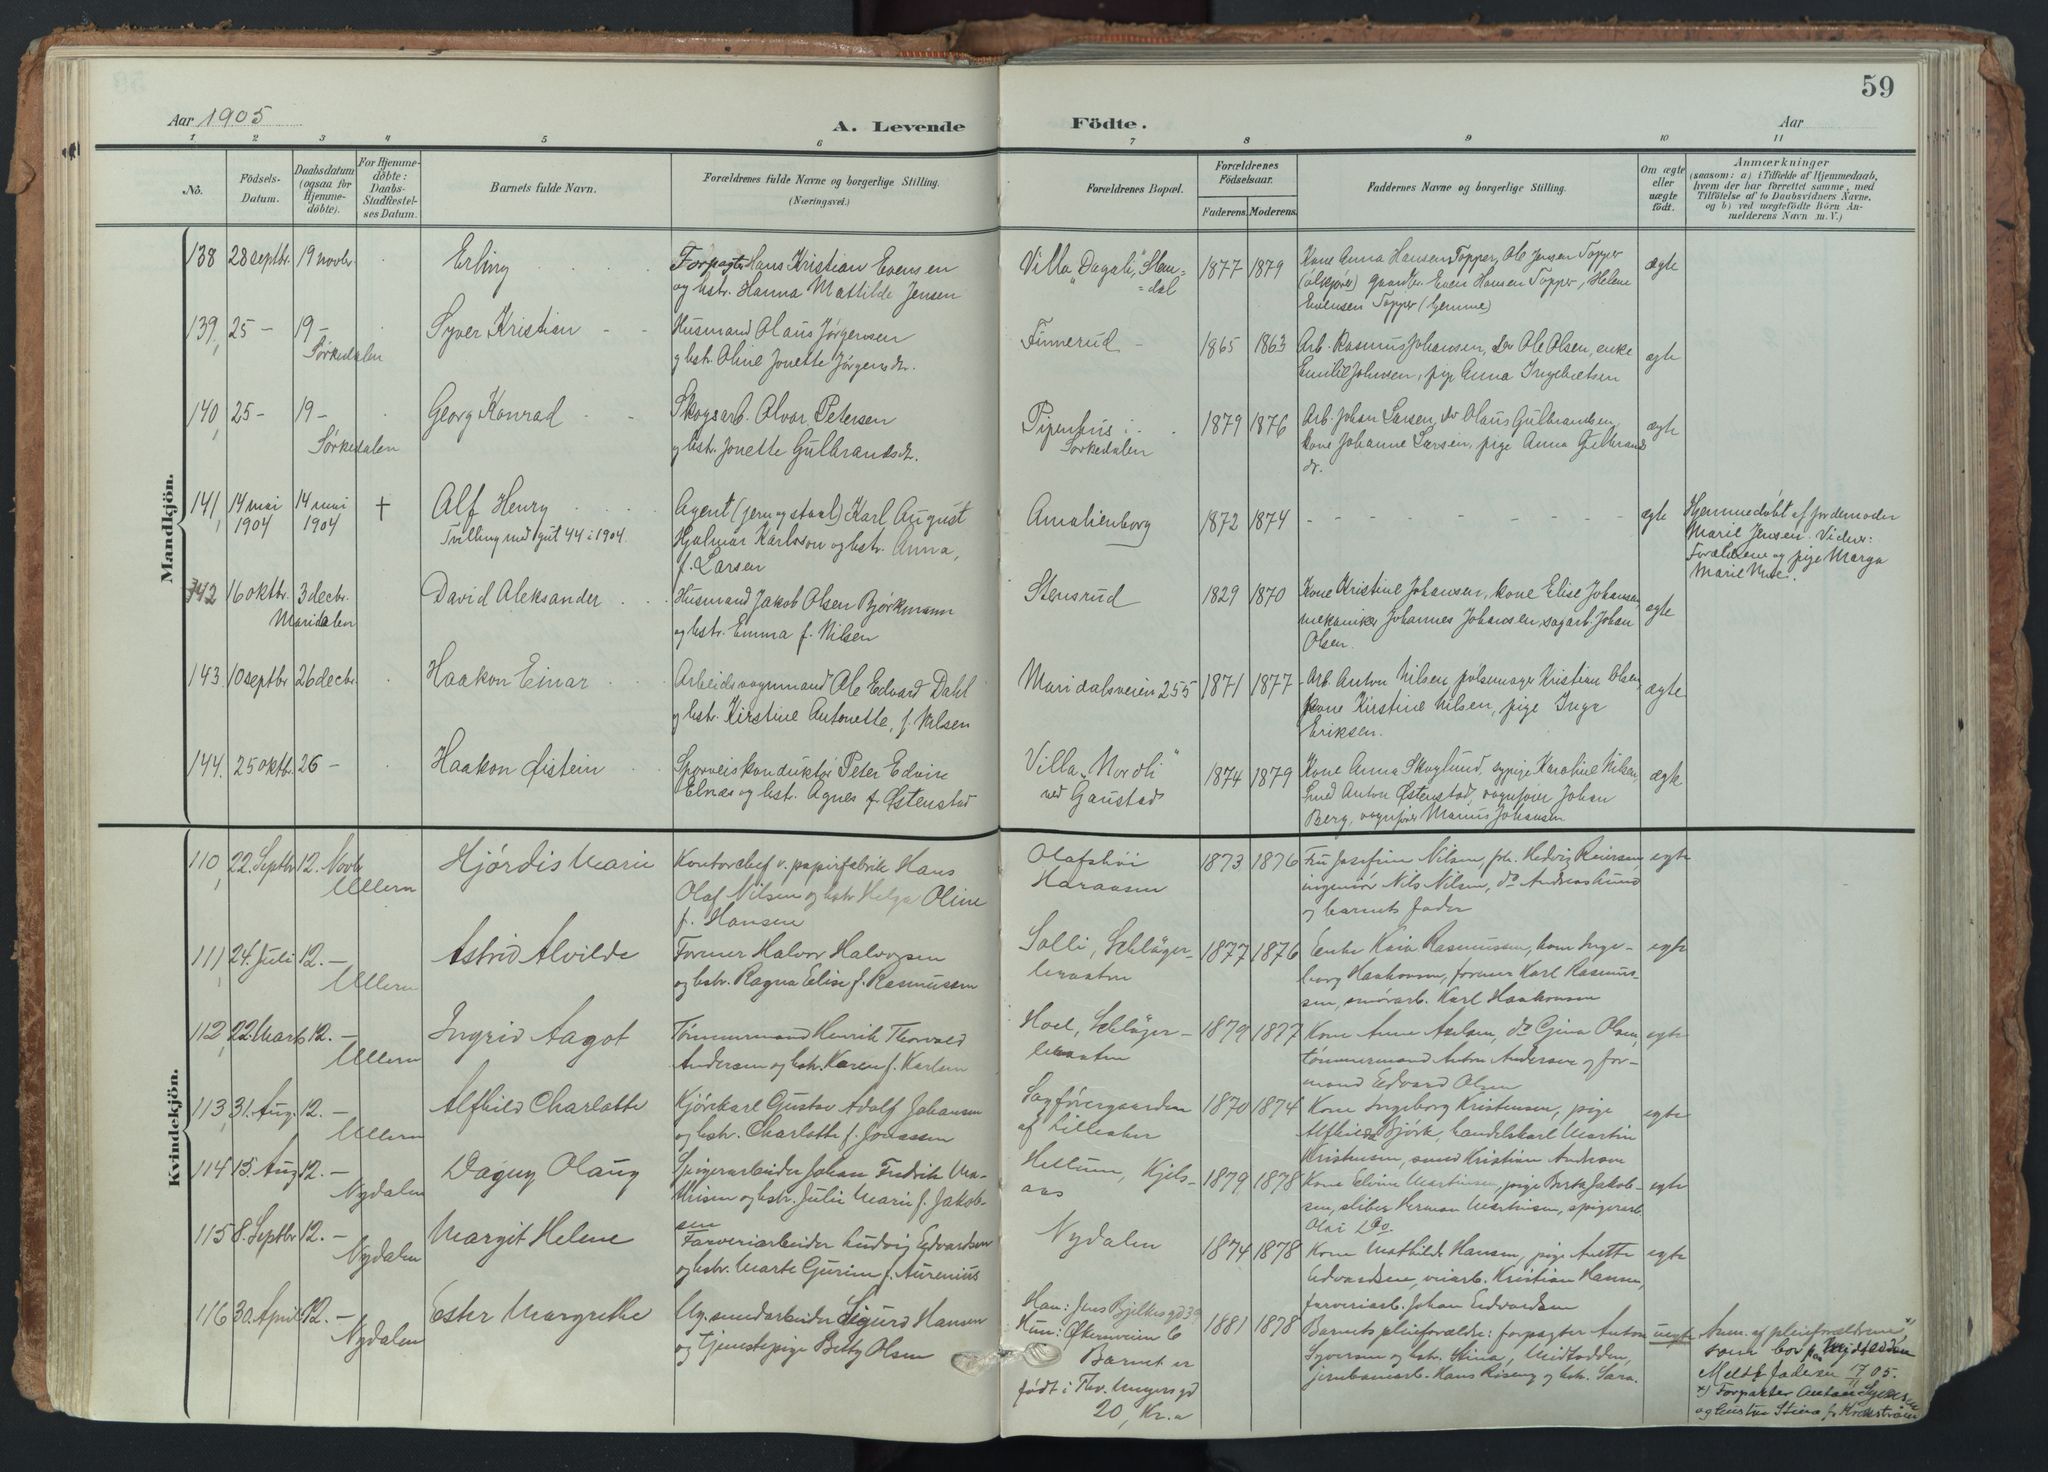 59
Aar 1905
A. Levende Födte.
Aar
1 2 3 4 5 6 7 8 9 10 11
No.
Födsels-
Datum.
Daabsdatum
(ogsaa for
Hjemme-
döbte).
For Hjemme-
döbte:
Daabs-
Stadfæstel-
ses Datum.
Barnets fulde Navn.
Forældrenes fulde Navne og borgerlige Stilling.
(Næringsvei.)
Forældrenes Bopæl.
Forældrenes
Födselsaar.
Faderens. Moderens.
Faddernes Navne og borgerlige Stilling.
Om ægte
eller
uægte
födt.
Anmærkninger
(saasom: a) i Tilfælde af Hjemmedaab,
hvem der har forrettet samme, med
Tilföielse af to Daabsvidners Navne,
og b) ved uægtefödte Börn An-
melderens Navn m. V.)
Mandkjön.
138 28 septbr. 19 novbr. Erling
Forpagter Hans Kristian Evensen
og hstr. Hanna Mathilde Jensen
Villa "Dagali," Slem-
=dal
1877 1879
Kone Anna Hansen Topper, Ole Jensen Topper
(ølkjører) gaardbr. Even Hansen Topper, Helene
Evensen Topper (hjemme)
ægte
139, 25 - 19 -
Sørkedalen
Syver Kristian
Husmand Olaus Jørgensen
og hstr. Oline Jonette Jørgensdr.
Finnerud
1865 1863
Arb. Rasmus Johansen, do Ole Olsen, enke
Emilie Johnsen, pige Anna Ingebretsen
ægte
140, 25 - 19 -
Sørkedalen
Georg Konrad
Skogsarb. Olvar Petersen
og hstr. Jonette Gulbrandsdr.
Pipenhus i
Sørkedalen
1879 1876
Arb. Johan Larsen, do Olaus Gulbrandsen,
kone Johanne Larsen, pige Anna Gulbrands
dr.
ægte
141, 14 mai 1904 14 mai 1904 +
Alf Henry
Tvilling med gut 44 i 1904.
Agent (jern og staal) Karl August
Hjalmar Karlsson og hstr. Anna,
f. Larsen
Amalienborg
1872 1874
ægte
Hjemmedøbt af jordemoder
Marie Jensen. Vidner:
Forældrene og pige Marga
Marie
142 16 oktbr. 3 decbr.
Maridalen
David Aleksander
Husmand Jakob Olsen Bjørkmann
og hstr. Emma f. Nilsen
Stensrud
1829 1870
Kone Kristine Johansen, kone Elise Johansen,
mekaniker Johannes Johansen, sagarb. Johan
Olsen.
ægte
143. 10 septbr 26 decbr.
Haakon Einar
Arbeidsvognmand Ole Edvard Dahl
og hstr. Kirstine Antonette, f. Nilsen
Maridalsveien 255
1871 1877
Arb. Anton Nilsen, pølsemager Kristian Olsen,
kone Kirstine Nilsen, pige Inga
Eriksen.
ægte
144. 25 oktbr. 26 -
Haakon Øistein
Sporveiskonduktør Peter Edvin
Elnæs og hstr. Agnes f. Østenstad
Villa "Nordli"
ved Gaustad
1874 1879
Kone Anna Skoglund, sypige Karoline Nilsen,
Smed Anton Østenstad, vognfører Johan
Berg, vognfører Marius Johansen
ægte
Kvindekjön.
110, 22. Septbr 12. Novbr
Ullern
Hjørdis Marie
Kontorchef v. papirfabrik Hans
Olaf Nilsen og hstr Helga Oline
f. Hansen
Olafshöi
1873 1876
Fru Josefine Nilsen, frk. Hedvig Reiersen,
ingeniør Nils Nilsen, do Andreas Lund
og barnets fader
egte
111, 24. Juli 12. -
Ullern
Astrid Alvilde
Former Halvor Halvorsen
og hstr. Ragna Elise f. Rasmussen
Solli, Schläger-
1877 1876
Enke Kaia Rasmussen, kone Inge-
borg Haakonsen, former Karl Rasmus-
sen, smörarb. Karl Haakonsen
egte
112, 22. Marts 12. -
Ullern
Ingrid Aagot
Tømmermand Henrik Thorvald
Andersen og hstr. Karen f. Karlsen
Hoel, Schläger-
1879 1877
Kone Anne Axelsen, do Gina Olsen,
tømmermand Anton Andersen og for-
mand Edvard Olsen
egte
113, 31. Aug. 12. -
Ullern
Alfhild Charlotte
Kjörekarl Gustav Adolf Johansen
og hstr. Charlotte f. Jonassen
Sagførergaarden
af Lilleaker
1870 1874
Kone Ingeborg Kristensen, pige
Alfhilda Bjørk, handelskarl Martin
Kristensen, smed Kristian Andersen
egte
114 15. Aug 12. -
Nydalen
Dagny Olaug
Spigerarbeider Johan Fredrik Ma-
thisen og hstr. Julie Marie f. Jakob-
sen
Hellum, Kjels-
aas
1879 1878
Kone Elvine Martinsen, pige Berta Jakob-
sen, sliber Herman Martinsen, spigerarb.
Olai Do.
egte
115 8. Septbr 12. -
Nydalen
Margit Helene
Farveriarbeider Ludvig Edvardsen
og hstr. Marte Gurine f. Aurenius
Nydalen
1874 1878
Kone Mathilde Hansen, pige Anette
Edvardsen, veiarb. Kristian Hansen,
farveriarb. Johan Edvardsen
egte
116 30. April 12. -
Nydalen
Ester Margrethe
Ug. smedarbeider Sigurd Hansen
og tjenestepige Betty Olsen
Han: Jens Bjelkesgd 39
Hun: Økernveien 6
Barnet er
født i Thv. Meyersgd
20, Kr.a
1881 1878
Barnets pleieforældre: forpagter Anton
Syversen og hstr. Stina, Midtodden,
jernbanearb. Hans Röseng og hstr. Sara.
uegte
Anm. af pleieforældrene,
som bor paa Midtodden
Meldt faderen 17/11 05.
x) Forpagter Anton Syversen
og hustru Stina f.